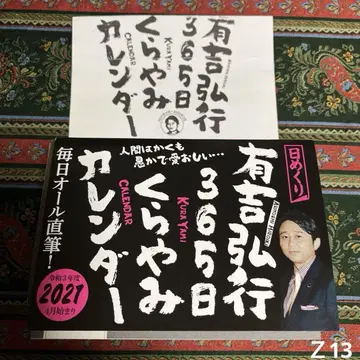 有吉弘行
ARIYOSHI HIROIKI
365日
KURAYAMI
くらやみ
CALENDAR
カレンダー
日めくり
人間はかくも
愚かで愛おしい…
有吉弘行
365日
KURAYAMI
くらやみ
CALENDAR
カレンダー
毎日オール直筆!
令和3年度
2021
4月始まり
Z 13